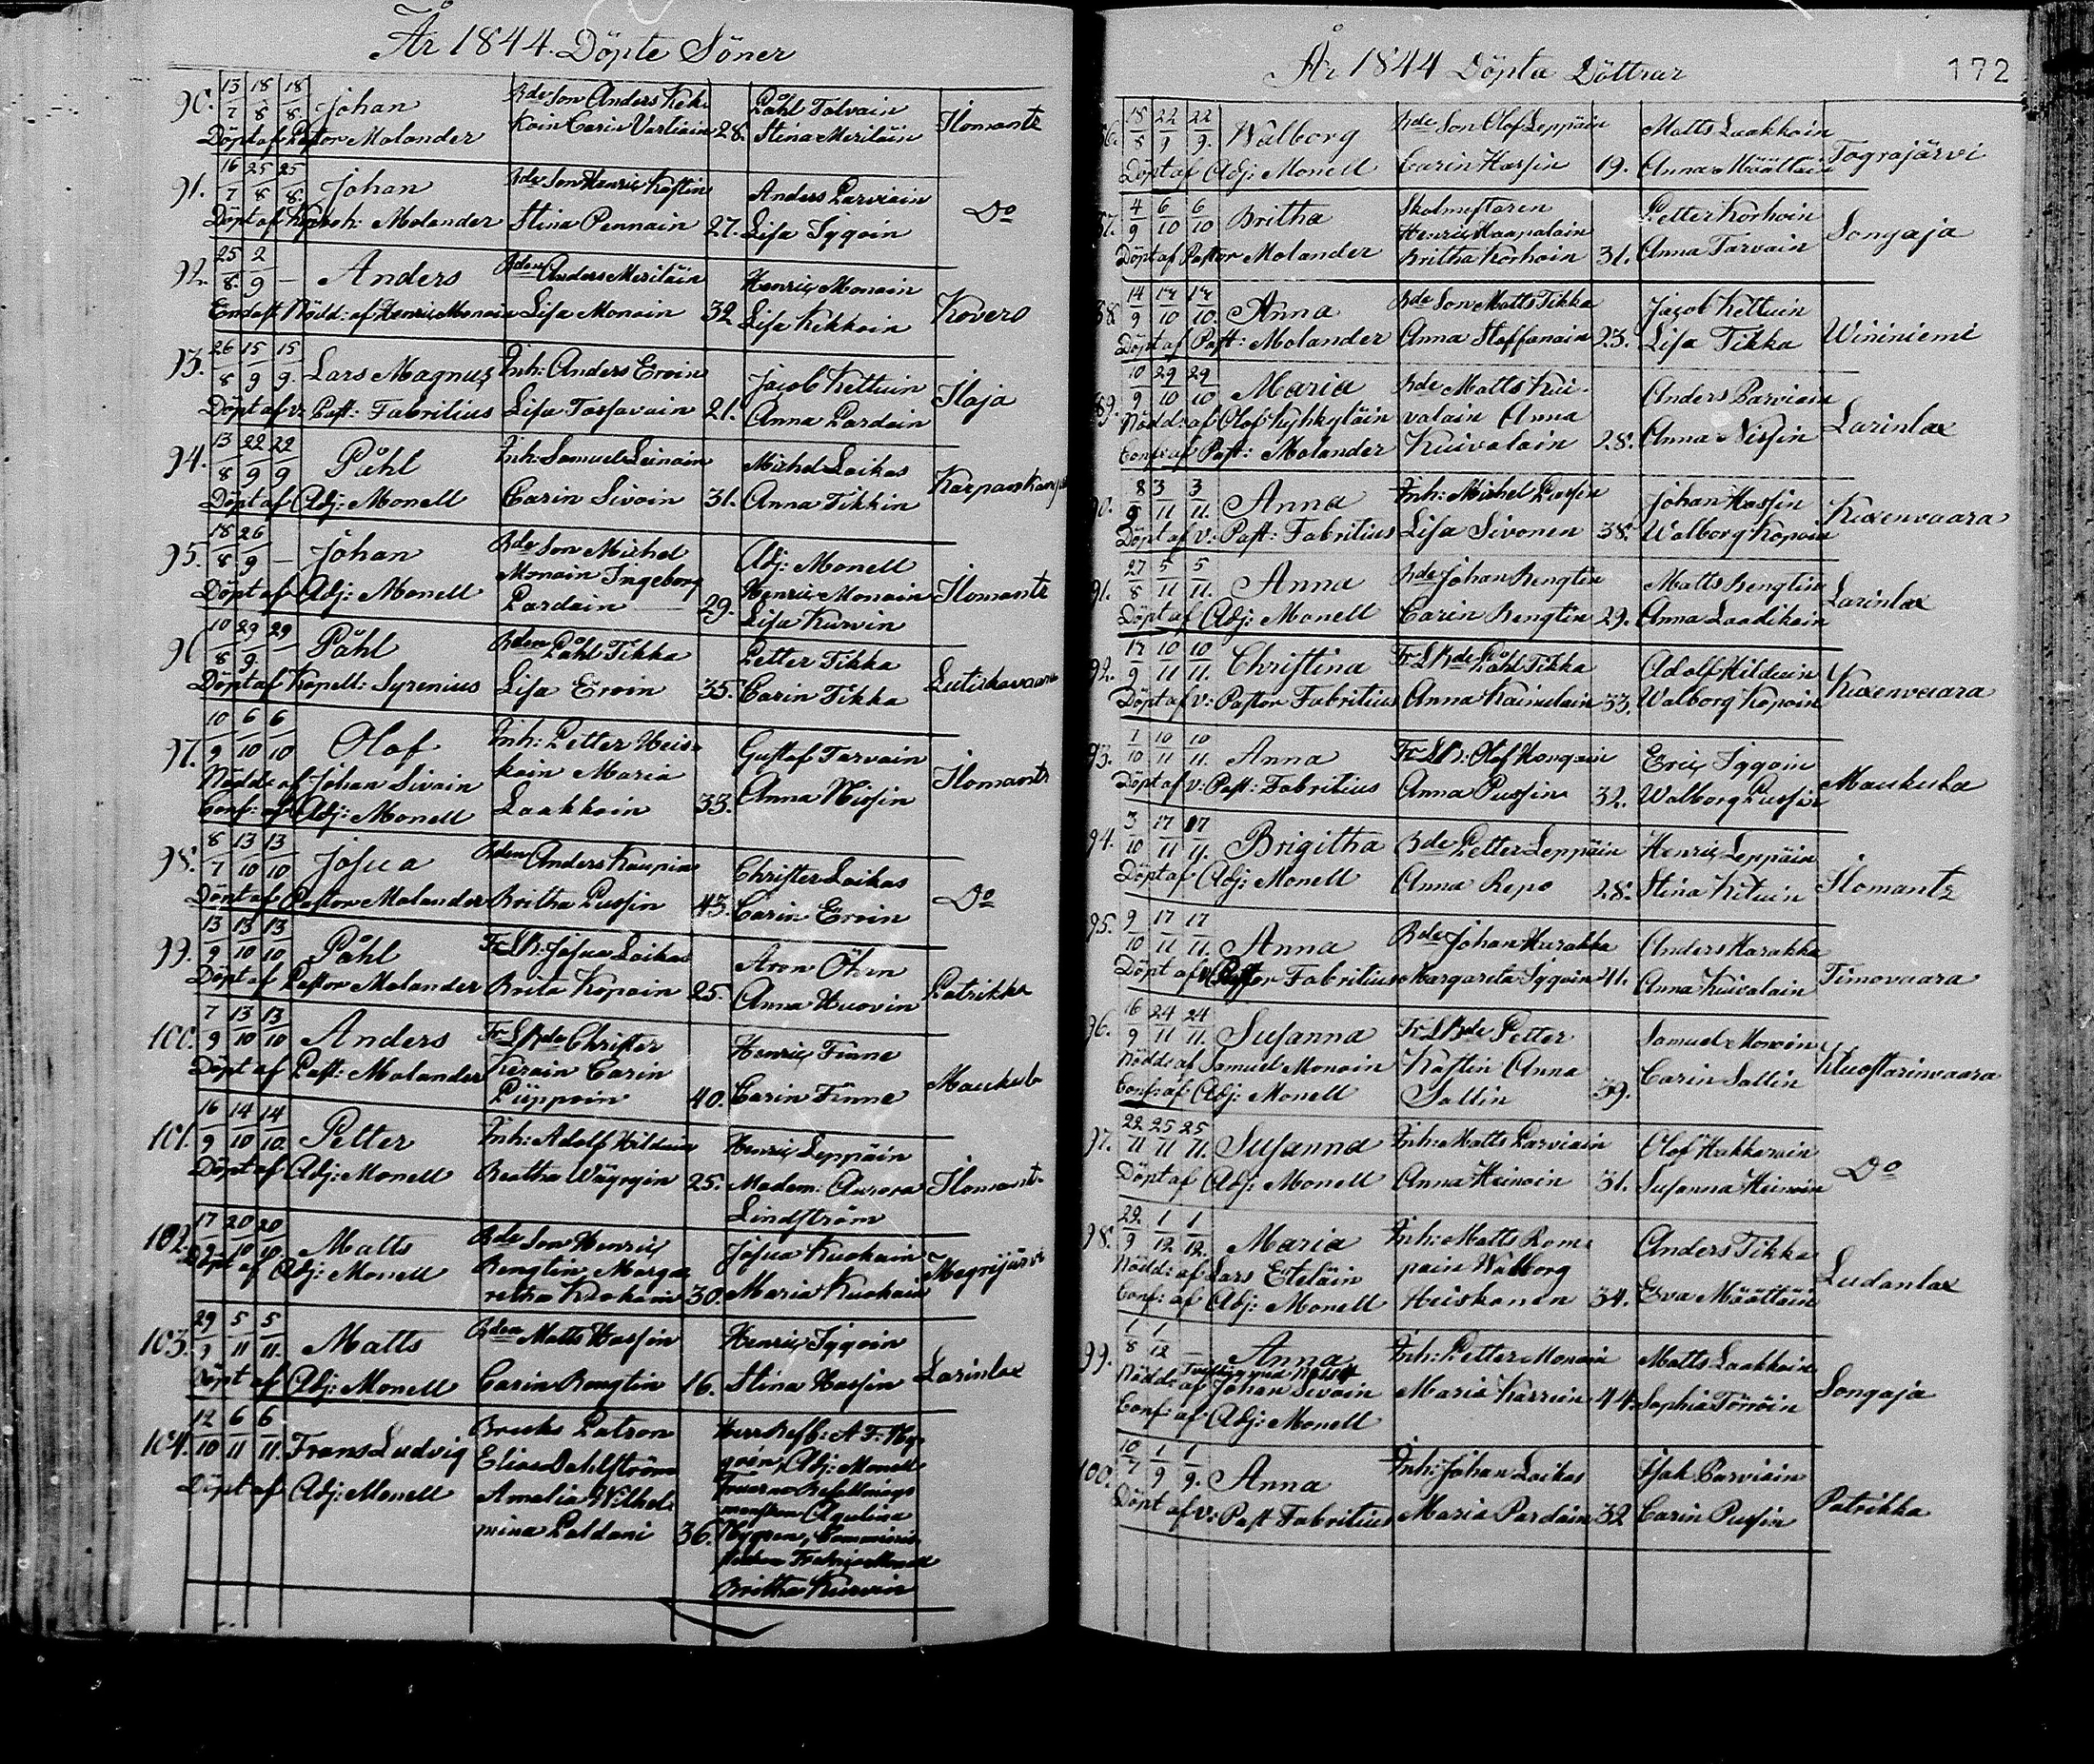 År 1844. Döpte Söner
90. 13/7 18/8 18/8. Johan Bde Son Anders Keki Påhl Tolvain Ilomantz
Döpt af Pastor Molander koin Carin Vartiain 28. Stina Meriläin
91. 16/7 25/8 25/8. Johan Bde Son Henric Kastin Anders Parviain Do
Döpt af Molander Stina Pennain 27. Lisa Iggoin
92. 25/8. 2/9 — Anders Bden Anders Meriläin Henric Monoin Kovero
Endast Nödd: af Henric Monoin Lisa Monoin 32 Lisa Kekkoin
93. 26/8 15/9 15/9. Lars Magnus Inh: Anders Eroin Jacob Kettuin Ilaja
Döpt af v: Past: Fabritius Lisa Tossavain 21. Anna Pardain
94. 13/8 22/9 22/9 Påhl Inh: Samuel Leinoin Michel Laikas
Döpt af Adj: Monell Carin Sivoin 31. Anna Tikkin
95. 18/8 26/9 — Johan Bde Son Michel Adj: Monell
Döpt af Adj: Monell Monoin Ingeborg Henric Monoin Ilomantz
Pardain 29. Lisa Kurvin
96 10/8 29/9. 29 Påhl Bden Påhl Tikka Petter Tikka
Döpt af Kapell: Syrenius Lisa Eroin 35. Carin Tikka
97. 10/9 6/10 6/10 Olof Inh: Petter Heis- Gustaf Tarvain Ilomantz
Nödd: af Johan Sivoin koin Maria Anna Nissin
Conf: af Adj: Monell Laakkoin 33.
98. 8/7 13/10 13/10 Josua Bden Anders Kaupin Christer Laikas Do
Döpt af Pastor Molander Britha Pussin 43. Carin Eroin
99. 13/9 13/10 13/10 Påhl Fr LB: Josua Laikas Aron Öhrn Patrikka
Döpt af Pastor Molander Brita Kopoin 25. Anna Huovin
100. 7/9 13/10 13/10 Anders Fr LBde Christer Henric Finne
Döpt af Past: Molander Keroin Carin Maukula
Piippoin 40. Carin Finne
101. 16/9 14/10 14/10. Petter Inh: Adolf Hilduin Henric Leppäin
Döpt af Adj: Monell Beatha Wäyryin 25. Madam: Aurora Ilomants
Lindström
102. 17/9 20/10 20/10. Matts Bde Son Henric Josua Kuokain Megrijärvi
Döpt af Adj: Monell Bengtin Marga
retha Kuokain 30. Maria Kuokain
103. 29/9 5/11 5/11. Matts Bden Matts Hassin Henric Iggoin
Döpt af Adj: Monell Carin Bengtin 16. Stina Hassin Larinlax
104. 12/10 6/11 6/11. Frans Ludvig Bruks Patron
Döpt af Adj: Monell Elias Dahlström Adj: Monell
Amalia Wilhel-
mina Paldani 36.
Britha Kurvin
År 1844 Döpta Döttrar 172
18/8 22/9 22/9. Walborg Bde Son Olof Leppäin Matts Laakkoin
Döpt af Adj: Monell Carin Hassin 19. Anna Määttäin Tograjärvi
4/9 6/10 6/10 Britha Skolmestaren Petter Korhoin Songaja
Henric Haapalain
Döpt af Pastor Molander Britha Korhoin 31. Anna Tarvain
14/9 14/10 14/10. Anna Bde Son Matts Tikka Jacob Kettuin
Döpt af Past: Molander Anna Staffanain 23. Lisa Tikka Wininiemi
89. 10/9 29/10 29/10. Maria Bde Matts Kui- Anders Parviain
Nödd: af Olof Kyhkyläin valain Anna Larinlax
Conf: af Past: Molander Kuivalain 28. Anna Nissin
90. 8/9 3/11 3/11. Anna Inh: Michel Pussin Johan Hassin Kuxenvaara
Döpt af v: Past: Fabritius Lisa Sivonen 38. Walborg Kopoin
91. 27/8 5/11 5/11. Anna Bde Johan Bengtin Matts Bengtin Larinlax
Döpt af Adj: Monell Carin Bengtin 29. Anna Laadikain
92. 17/9 10/11 10/11. Christina Fr LBde Påhl Tikka Adolf Hilduin Kuxenvaara
Döpt af v: Pastor Fabritius Anna Kainulain 33. Walborg Kopoin
93. 7/10 10/11 10/11. Anna Fr LB: Olof Hongain Eric Iggoin
Döpt af v: Past: Fabritius Anna Pussin 32. Walborg Pussin Maukula
94. 3/10 17/11 17/11. Brigitha Bde Petter Leppäin Henric Leppäin
Döpt af Adj: Monell Anna Repo 28. Stina Kituin Ilomantz
95. 9/10 17/11 17/11. Anna Bde Johan Harakka Anders Harakka
Döpt af v: Pastor Fabritius Margareta Iggoin 41. Anna Kuivalain Timovaara
96. 16/9 24/11 24/11. Susanna Fr LBde Petter Samuel Monoin
Nödd: af Samuel Monoin Kastin Anna Carin Sallin Kuostarinvaara
Conf: af Adj: Monell Sallin 39.
97. 22/11 25/11 25/11. Susanna Inh: Matts Parviain Olof Hakkarain
Döpt af Adj: Monell Anna Heinoin 31. Susanna Heinoin Do
98. 29/9 1/12 1/12. Maria Inh: Matts Rom- Anders Tikka
Nödd: af Lars Eteläin pain Walborg Ludanlax
Conf: af Adj: Monell Heiskanen 34. Eva Määttäin
99. 1/8 1/12 — Anna Inh: Petter Monoin Matts Laakkoin
Nödd: af Johan Sivoin Maria Karvin 44. Sophia Törröin Songaja
Conf: af Adj: Monell
100. 10/7 1/9 1/9. Anna Inh: Johan Laikas Isak Parviain
Döpt af v: Past Fabritius Maria Pardain 32 Carin Pussin Patrikka